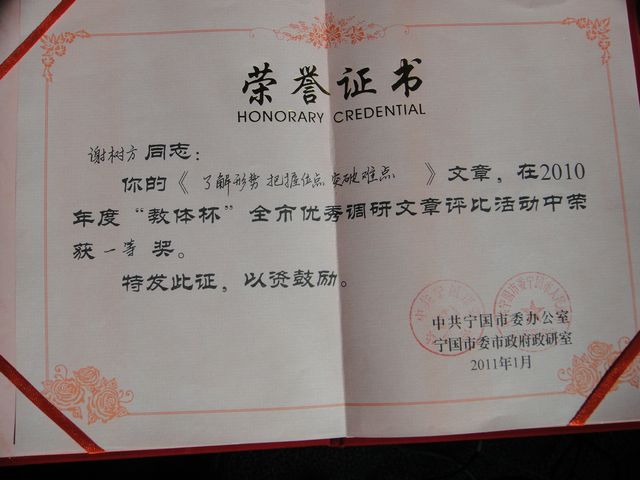 荣誉证书
HONORARY CREDENTIAL
谢树方 同志：
你的《 了解形势 把握住点 突破难点 》文章，在2010
年度“教体杯”全市优秀调研文章评比活动中荣
获 一等 奖。
特发此证，以资鼓励。
中共宁国市委办公室
宁国市委市政府政研室
2011年1月